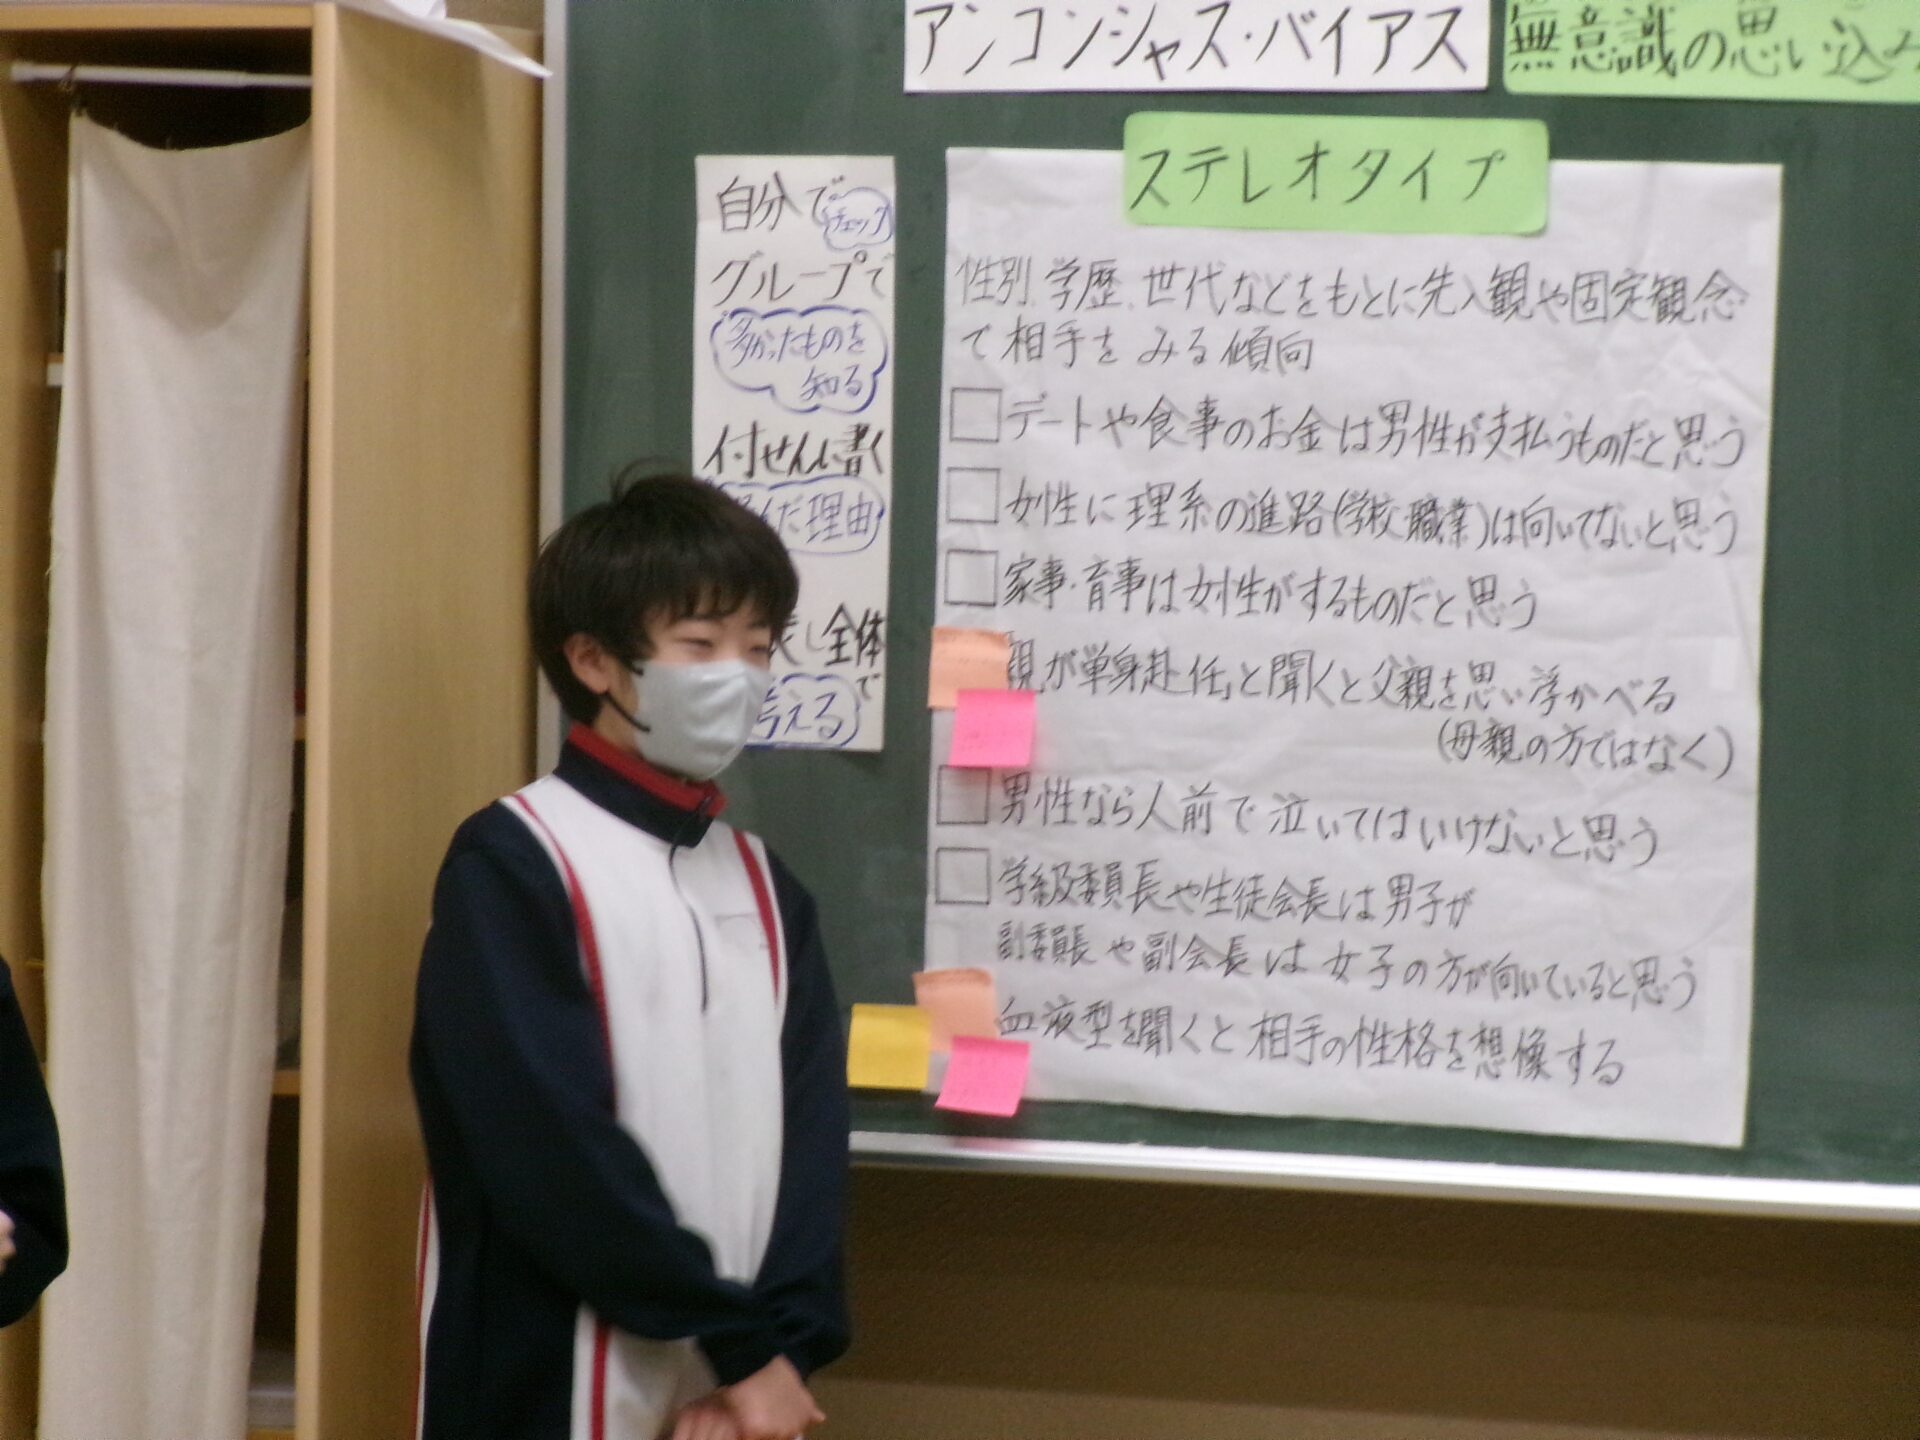 アンコンシャス・バイアス
無意識の思い込み
自分で
チェック
グループで
多かったものを
知る
付せんに書く
だ理由
し全体で
考える
ステレオタイプ
性別、学歴、世代などをもとに先入観や固定観念
で相手をみる傾向
□デートや食事のお金は男性が支払うものだと思う
□女性に理系の進路(学校・職業)は向いてないと思う
□家事・育事は女性がするものだと思う
親が単身赴任」と聞くと父親を思い浮かべる
(母親の方ではなく)
□男性なら人前で泣いてはいけないと思う
□学級委員長や生徒会長は男子が
副委員長や副会長は女子の方が向いていると思う
血液型を聞くと相手の性格を想像する